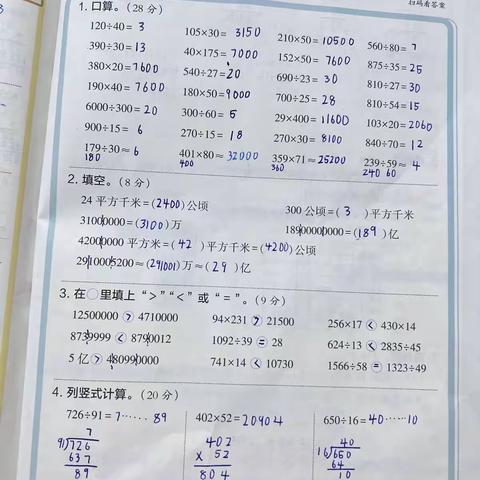 扫码看答案
1. 口算。(28 分)
120÷40= 3 105×30= 3150 210×50=10500 560÷80= 7
390÷30= 13 40×175= 7000 152×50= 7600 875÷35= 25
380×20=7600 540÷27=20 690÷23= 30 810÷27= 30
190×40= 7600 180×50=9000 700÷25= 28 810÷54= 15
6000÷300= 20 300÷60= 5 29×400=11600 103×20=2060
900÷15= 6 270÷15= 18 270×30= 8100 840÷70= 12
179÷30≈ 6 401×80≈ 32000 359×71≈25200 239÷59≈ 4
180 400 360 240 60
2. 填空。(8 分)
24 平方千米=(2400)公顷 300 公顷=( 3 )平方千米
31000000=(3100)万 18900000000=(189)亿
42000000 平方米=( 42 )平方千米=(4200)公顷
2910005200≈(291001)万≈( 29 )亿
3. 在○里填上“>”“<”或“=”。(9 分)
12500000 > 4710000 94×231 > 21500 256×17 < 430×14
8739999 < 8790012 1092÷39 = 28 624÷13 < 2835÷45
5 亿 > 480990000 741×14 < 10730 1566÷58 = 1323÷49
4. 列竖式计算。(20 分)
726÷91= 7……89 402×52=20904 650÷16= 40……10
7 402 40
91 726 × 52 16 650
637 804 64
89 10